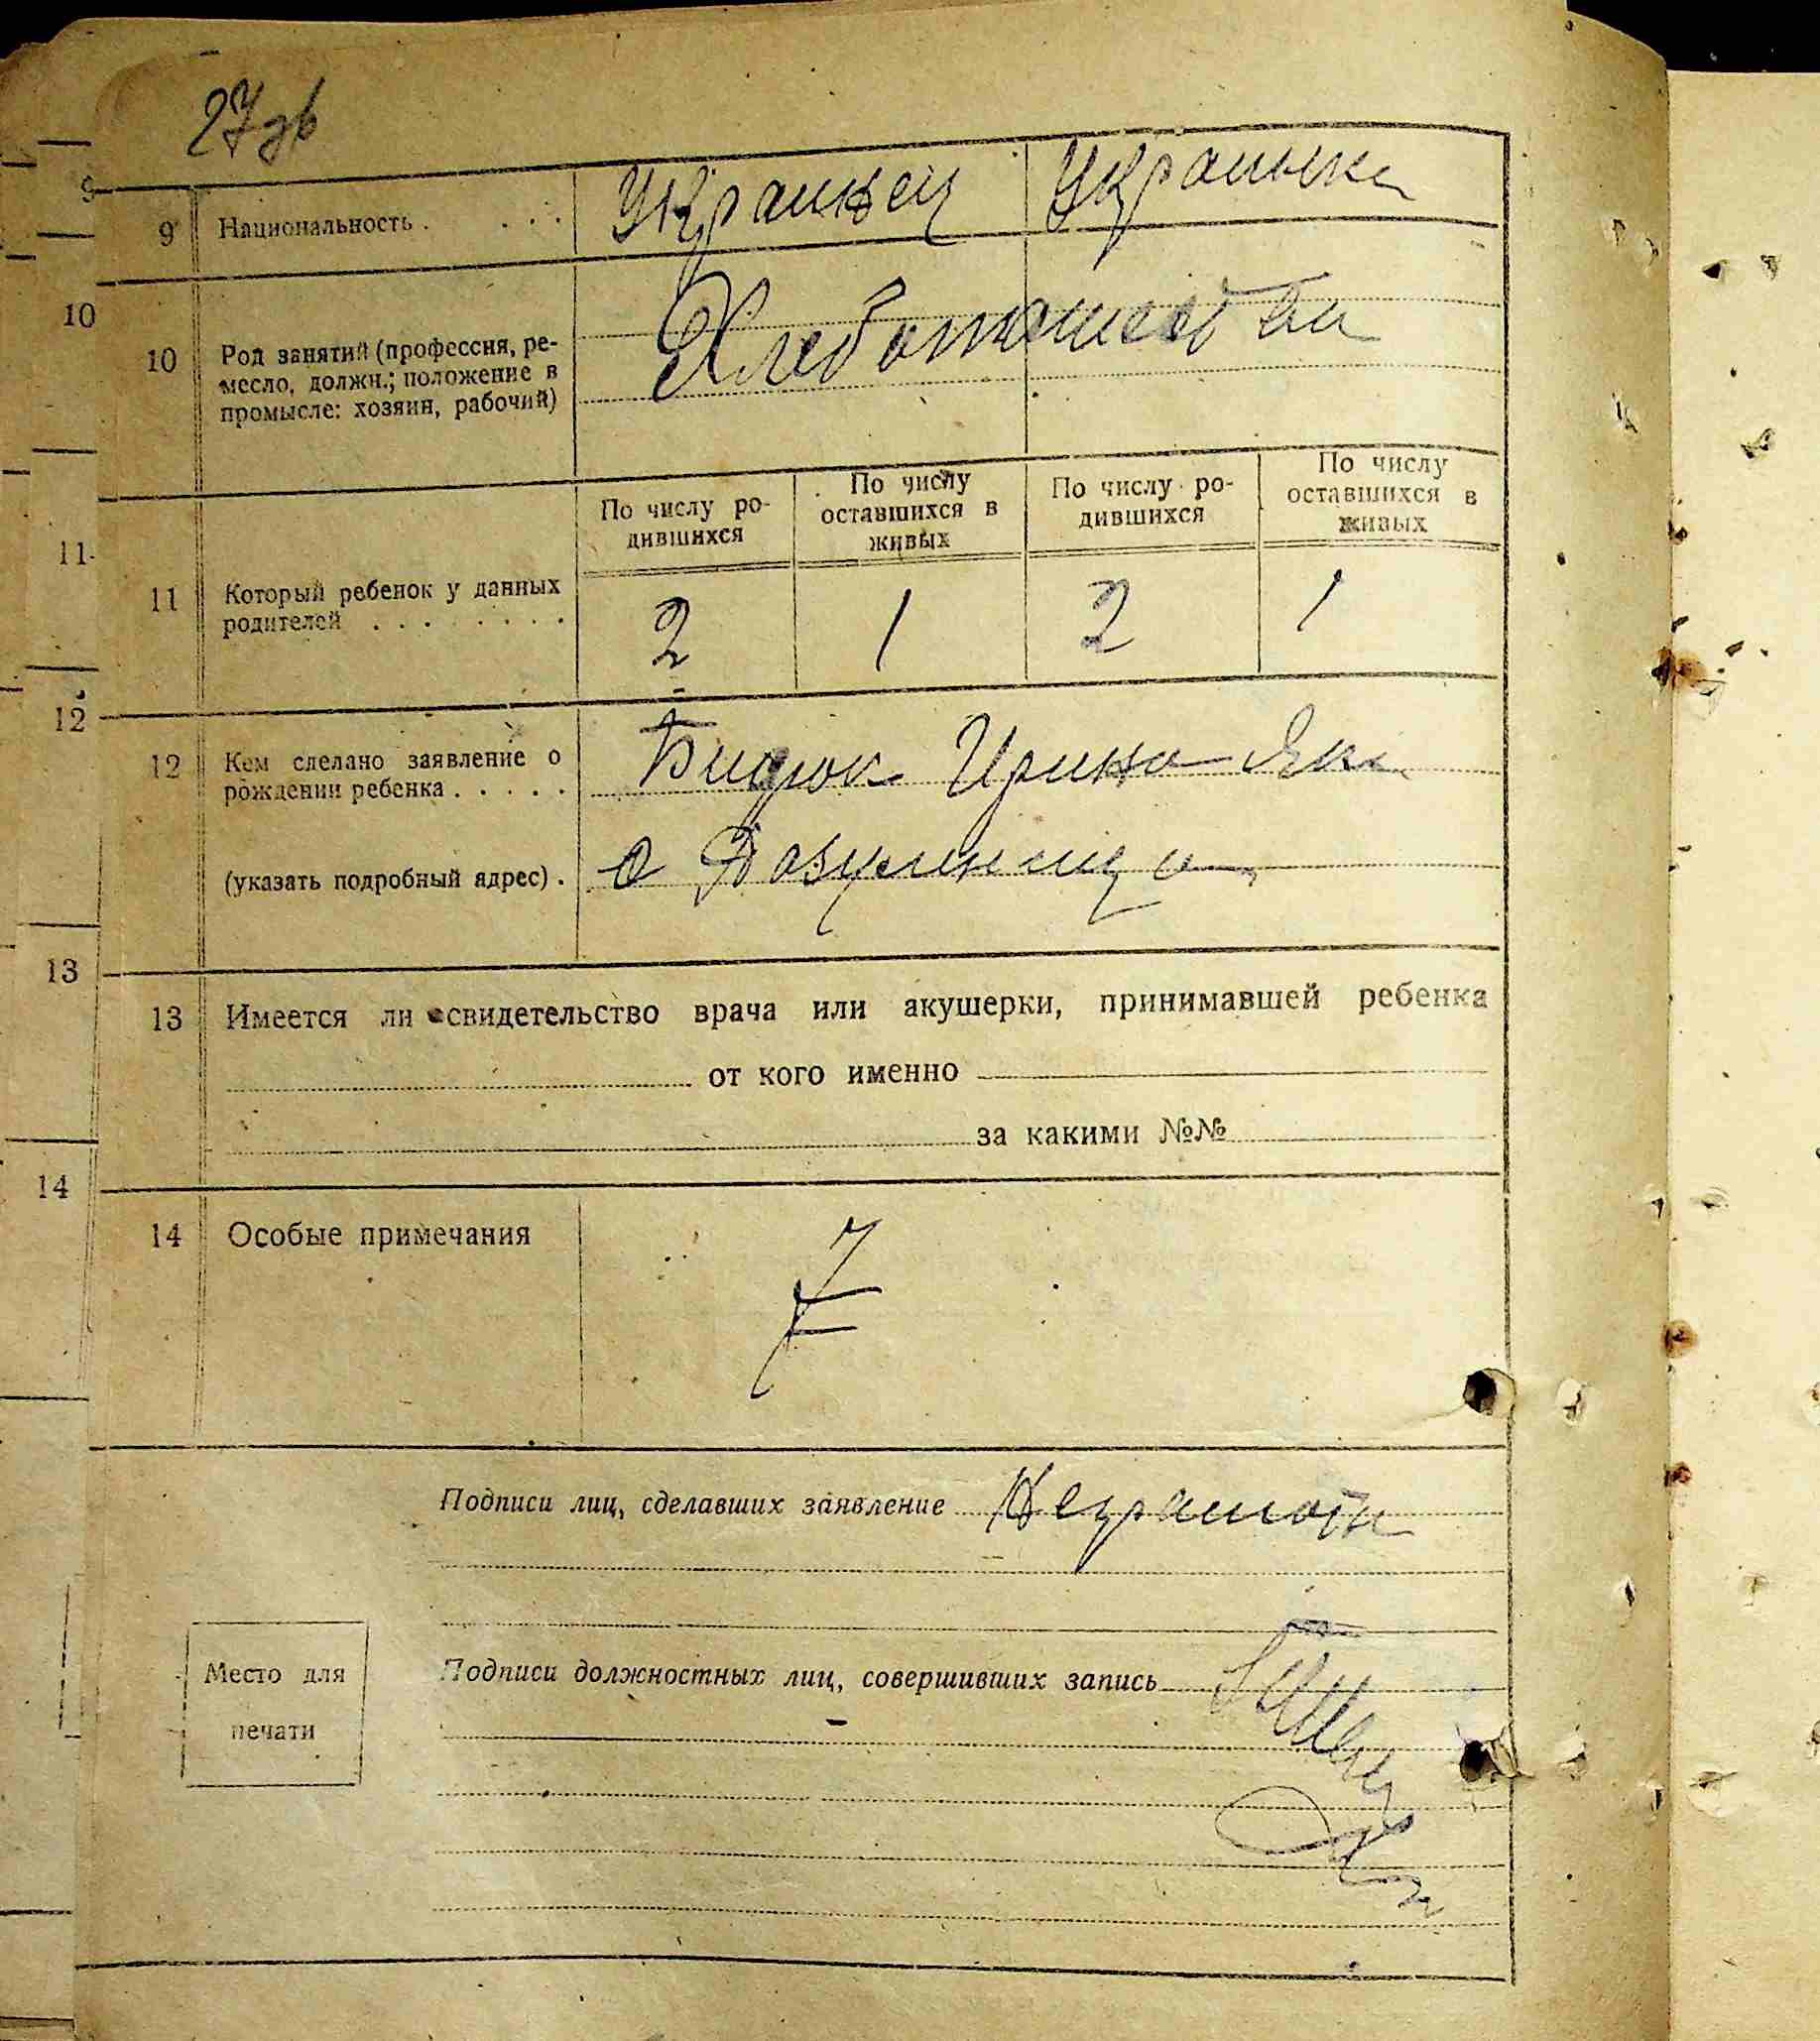 27
9
9 Национальность . . . . Украинец Украинка
10
10 Род занятий (профессия, ре-
месло, должн.; положение в
промысле: хозяин, рабочий)
По числу ро-
дившихся
По числу
оставшихся в
живых
По числу ро-
дившихся
По числу
оставшихся в
живых
11
11 Который ребенок у данных
родителей . . . . . . . .
2 1 2 1
12
12 Кем сделано заявление о
рождении ребенка . . . . .
Бидюк Ирина
(указать подробный адрес) .
13
13 Имеется ли свидетельство врача или акушерки, принимавшей ребенка
от кого именно
за какими №№
14
14 Особые примечания
Подписи лиц, сделавших заявление Неграмотн
Место для
печати
Подписи должностных лиц, совершивших запись